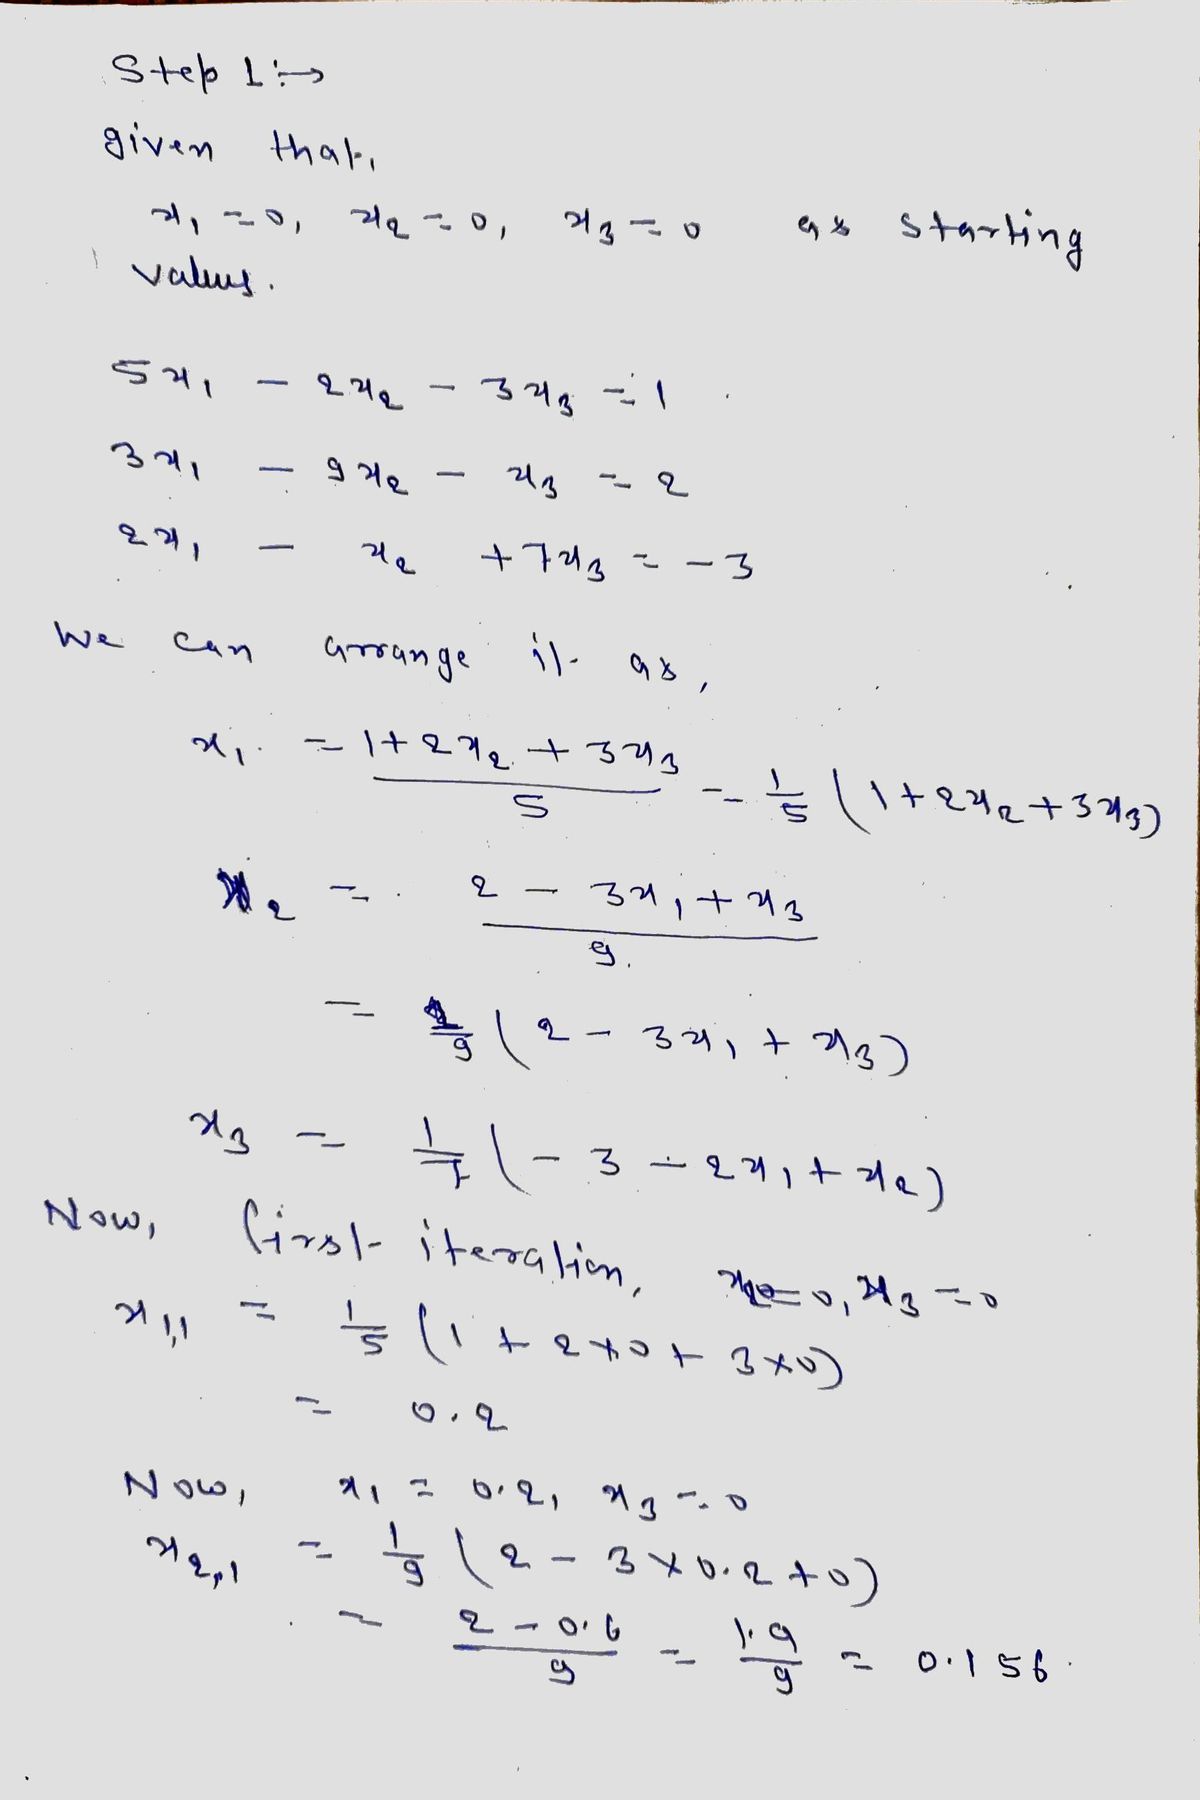 Step 1:→
given that,
x₁ = 0, x₂ = 0, x₃ = 0 as starting
values.
5x₁ - 2x₂ - 3x₃ = 1
3x₁ - 9x₂ - x₃ = 2
2x₁ - x₂ + 7x₃ = -3
We can arrange it as,
x₁ = (1 + 2x₂ + 3x₃)/5 = 1/5 (1 + 2x₂ + 3x₃)
x₂ = (2 - 3x₁ + x₃)/9.
= 1/9 (2 - 3x₁ + x₃)
x₃ = 1/7 (-3 - 2x₁ + x₂)
Now, first iteration, x₂ = 0, x₃ = 0
x₁,₁ = 1/5 (1 + 2×0 + 3×0)
= 0.2
Now, x₁ = 0.2, x₃ = 0
x₂,₁ = 1/9 (2 - 3×0.2 + 0)
= (2 - 0.6)/9 = 1.9/9 = 0.156.